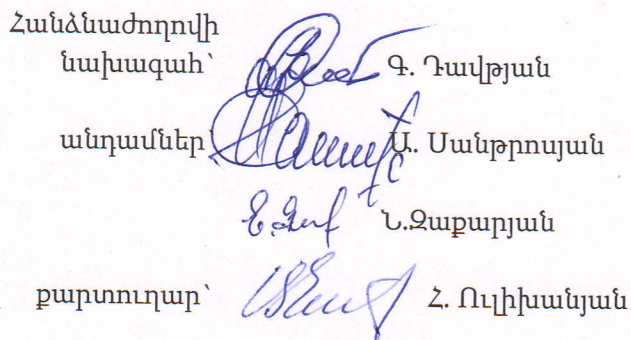 Հանձնաժողովի
նախագահ՝ Գ. Դավթյան
անդամներ՝ Ա. Սանթրոսյան
Ն.Զաքարյան
քարտուղար՝ Հ. Ուլիխանյան